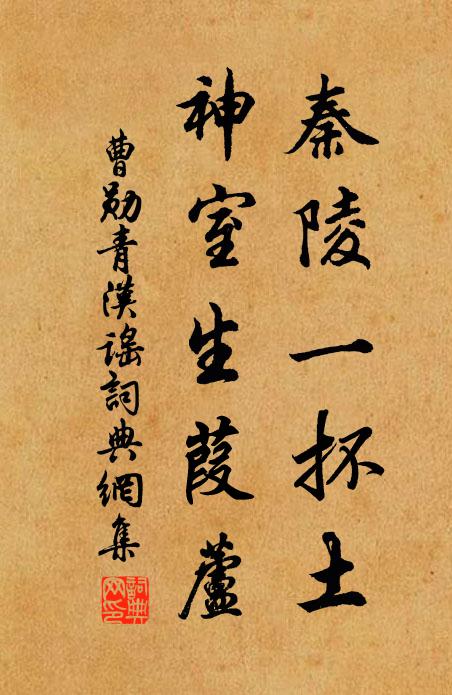 秦陵一抔土
神室生葭蘆
曹勛青漢謠詞典網集
詞典网印